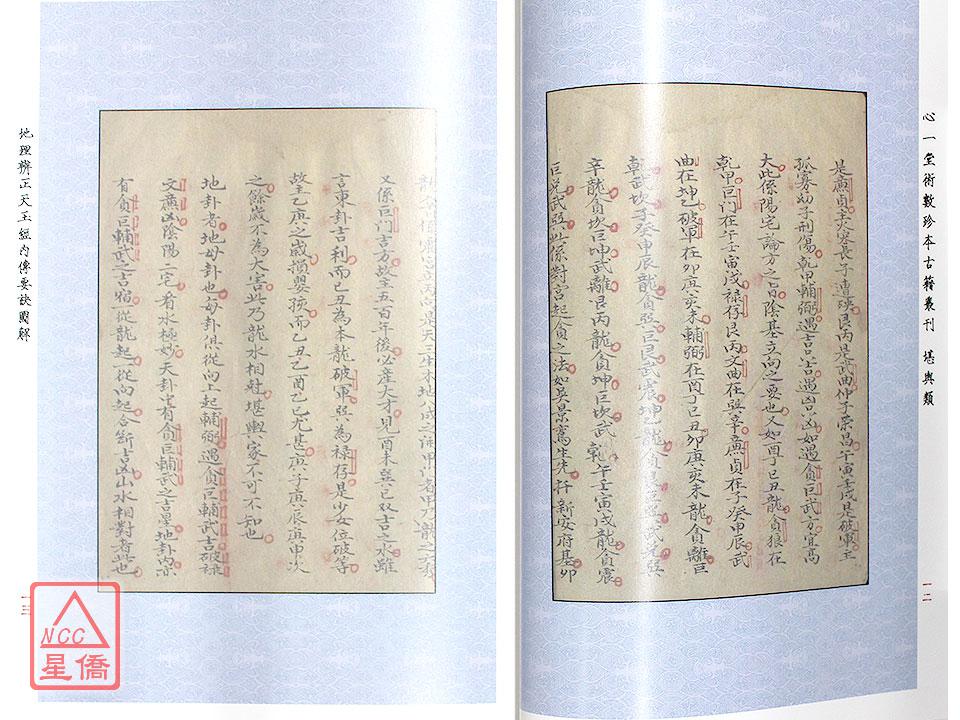 心一堂術數珍本古籍叢刊 堪輿類
是廉貞主火寡長子遭殃艮丙是武曲仲子榮昌午寅壬戌是破軍主
孤寡幼子刑傷乾甲輔弼遇吉吉遇凶凶如遇貪巨武方宜高
大此係陽宅論方之旨陰基立向之要也又如酉丁巳丑龍貪狼在
乾甲巨門在午壬寅戌祿存艮丙文曲在巽辛廉貞在子癸申辰武
曲在坤乙破軍在卯庚亥未輔弼在酉丁巳丑卯庚亥未龍貪離巨
乾武坎子癸申辰龍貪巽巨艮武震坤乙龍貪艮巨巽武兌巽
辛龍貪坎巨坤武離艮丙龍貪坤巨坎武乾午壬寅戌龍貪震
巨兌武巽此係對宮起貪之法如吳景鸞先生扦新安府基卯
一二
又係巨門吉方故主五百年後必產大才見酉未巽巳双吉之水雖
言東卦吉利而巳丑為本龍破軍巽為祿存是少女位破等
故主乙庚之歲損嬰孩而乙丑乙酉乙巳尤甚庚子庚辰庚申次
之餘歲不為大害此乃龍水相對堪輿家不可不知也
地卦者地母卦也每卦俱從向上起輔弼遇貪巨輔武吉破祿
文廉凶陰陽二宅看水極妙天卦中有貪巨輔武之吉星地卦內亦
有貪巨輔武之吉宿一從龍起一從向起合斷吉凶山水相對者此也
地理辨正天玉經內傳要訣圖解
一三
NCC
星僑